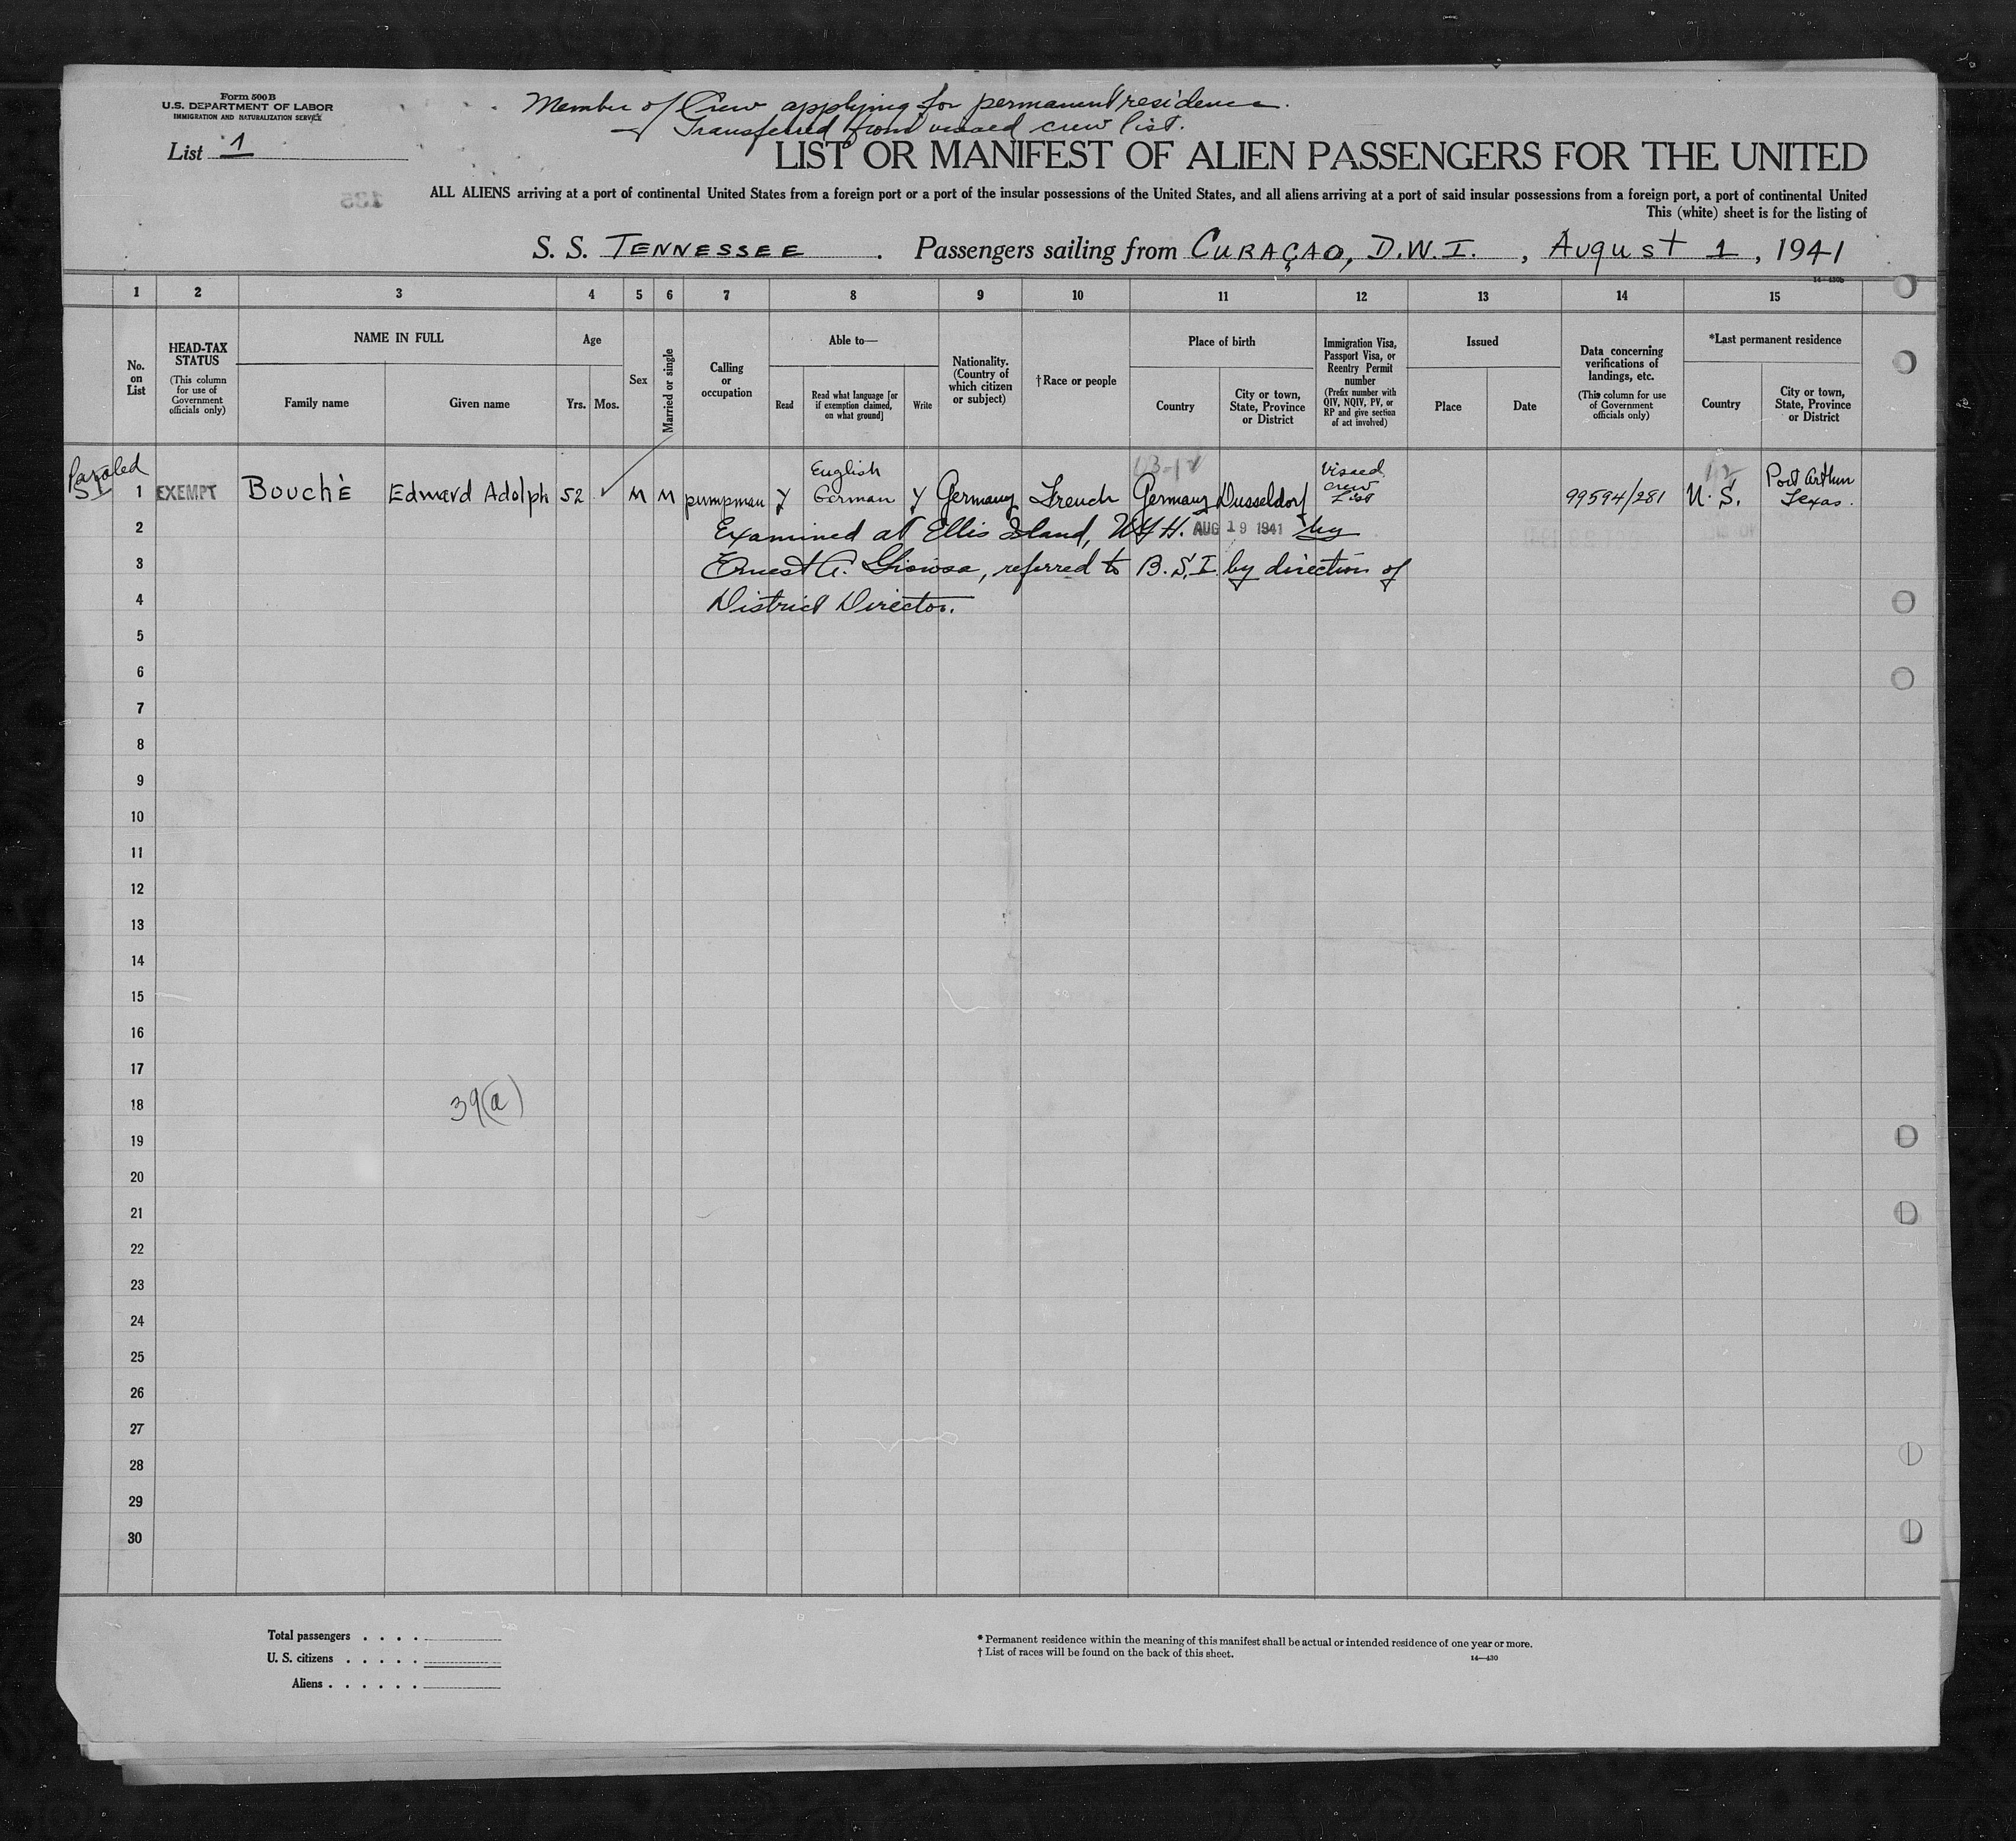 Form 500B
U.S. DEPARTMENT OF LABOR
IMMIGRATION AND NATURALIZATION SERVICE
Member of Crew applying for permanent residence.
Transferred from visaed crew list.
List 1
LIST OR MANIFEST OF ALIEN PASSENGERS FOR THE UNITED
ALL ALIENS arriving at a port of continental United States from a foreign port or a port of the insular possessions of the United States, and all aliens arriving at a port of said insular possessions from a foreign port, a port of continental United
This (white) sheet is for the listing of
S. S. TENNESSEE . Passengers sailing from CURAÇAO, D.W.I. , August 1 , 1941
14—430b
1 2 3 4 5 6 7 8 9 10 11 12 13 14 15
No. on List
HEAD-TAX STATUS
(This column for use of Government officials only)
NAME IN FULL
Family name
Given name
Age
Yrs. Mos.
Sex
Married or single
Calling or occupation
Able to—
Read
Read what language [or if exemption claimed, on what ground]
Write
Nationality. (Country of which citizen or subject)
†Race or people
Place of birth
Country
City or town, State, Province or District
Immigration Visa, Passport Visa, or Reentry Permit number
(Prefix number with QIV, NQIV, PV, or RP and give section of act involved)
Issued
Place
Date
Data concerning verifications of landings, etc.
(This column for use of Government officials only)
*Last permanent residence
Country
City or town, State, Province or District
Paroled
SI 1 EXEMPT Bouchè Edward Adolph 52 ✓ M M pumpman Y English German Y Germany French Germany Dusseldorf Visaed Crew List 99594/281 U.S. Port Arthur Texas.
2 Examined at Ellis Island, NYH. AUG 19 1941 by
3 Ernest A. , referred to B.S.I. by direction of
4 District Director.
5
6
7
8
9
10
11
12
13
14
15
16
17
18 39(a)
19
20
21
22
23
24
25
26
27
28
29
30
Total passengers . . . .
U. S. citizens . . . . .
Aliens . . . . . .
* Permanent residence within the meaning of this manifest shall be actual or intended residence of one year or more.
† List of races will be found on the back of this sheet.
14—430